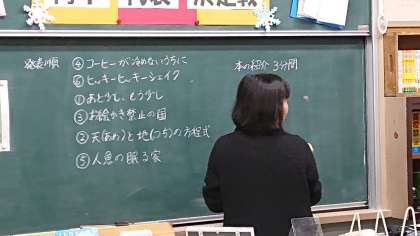 発表順
④コーヒーが冷めないうちに
⑥ヒッキーヒッキーシェイク
①あと少し、もう少し
③お絵かき禁止の国
②天(あめ)と地(つち)の方程式
⑤人魚の眠る家
本の紹介 3分間